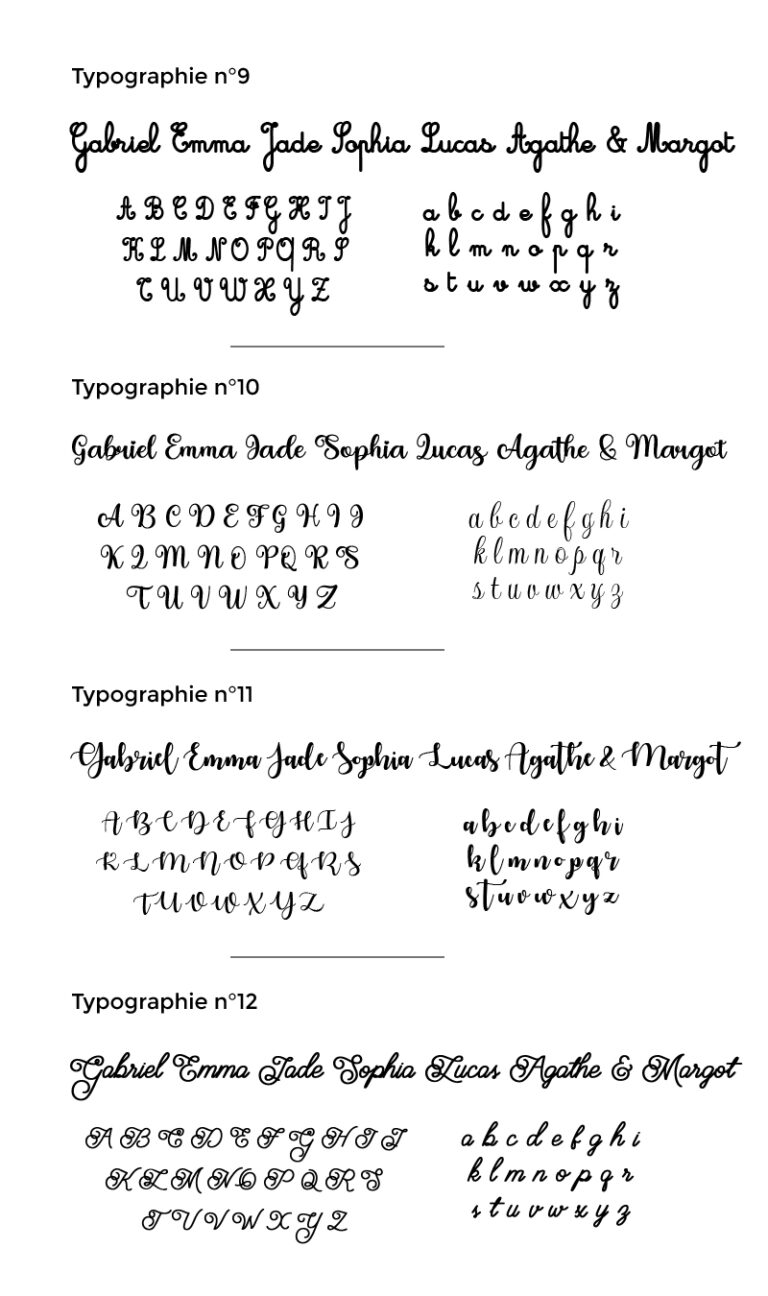 Typographie n°9
Gabriel Emma Jade Sophia Lucas Agathe & Margot
A B C D E F G H I J
K L M N O P Q R S
T U V W X Y Z
a b c d e f g h i
k l m n o p q r
s t u v w x y z
Typographie n°10
Gabriel Emma Jade Sophia Lucas Agathe & Margot
A B C D E F G H I J
K L M N O P Q R S
T U V W X Y Z
a b c d e f g h i
k l m n o p q r
s t u v w x y z
Typographie n°11
Gabriel Emma Jade Sophia Lucas Agathe & Margot
A B C D E F G H I J
K L M N O P Q R S
T U V W X Y Z
a b c d e f g h i
k l m n o p q r
s t u v w x y z
Typographie n°12
Gabriel Emma Jade Sophia Lucas Agathe & Margot
A B C D E F G H I J
K L M N O P Q R S
T U V W X Y Z
a b c d e f g h i
k l m n o p q r
s t u v w x y z